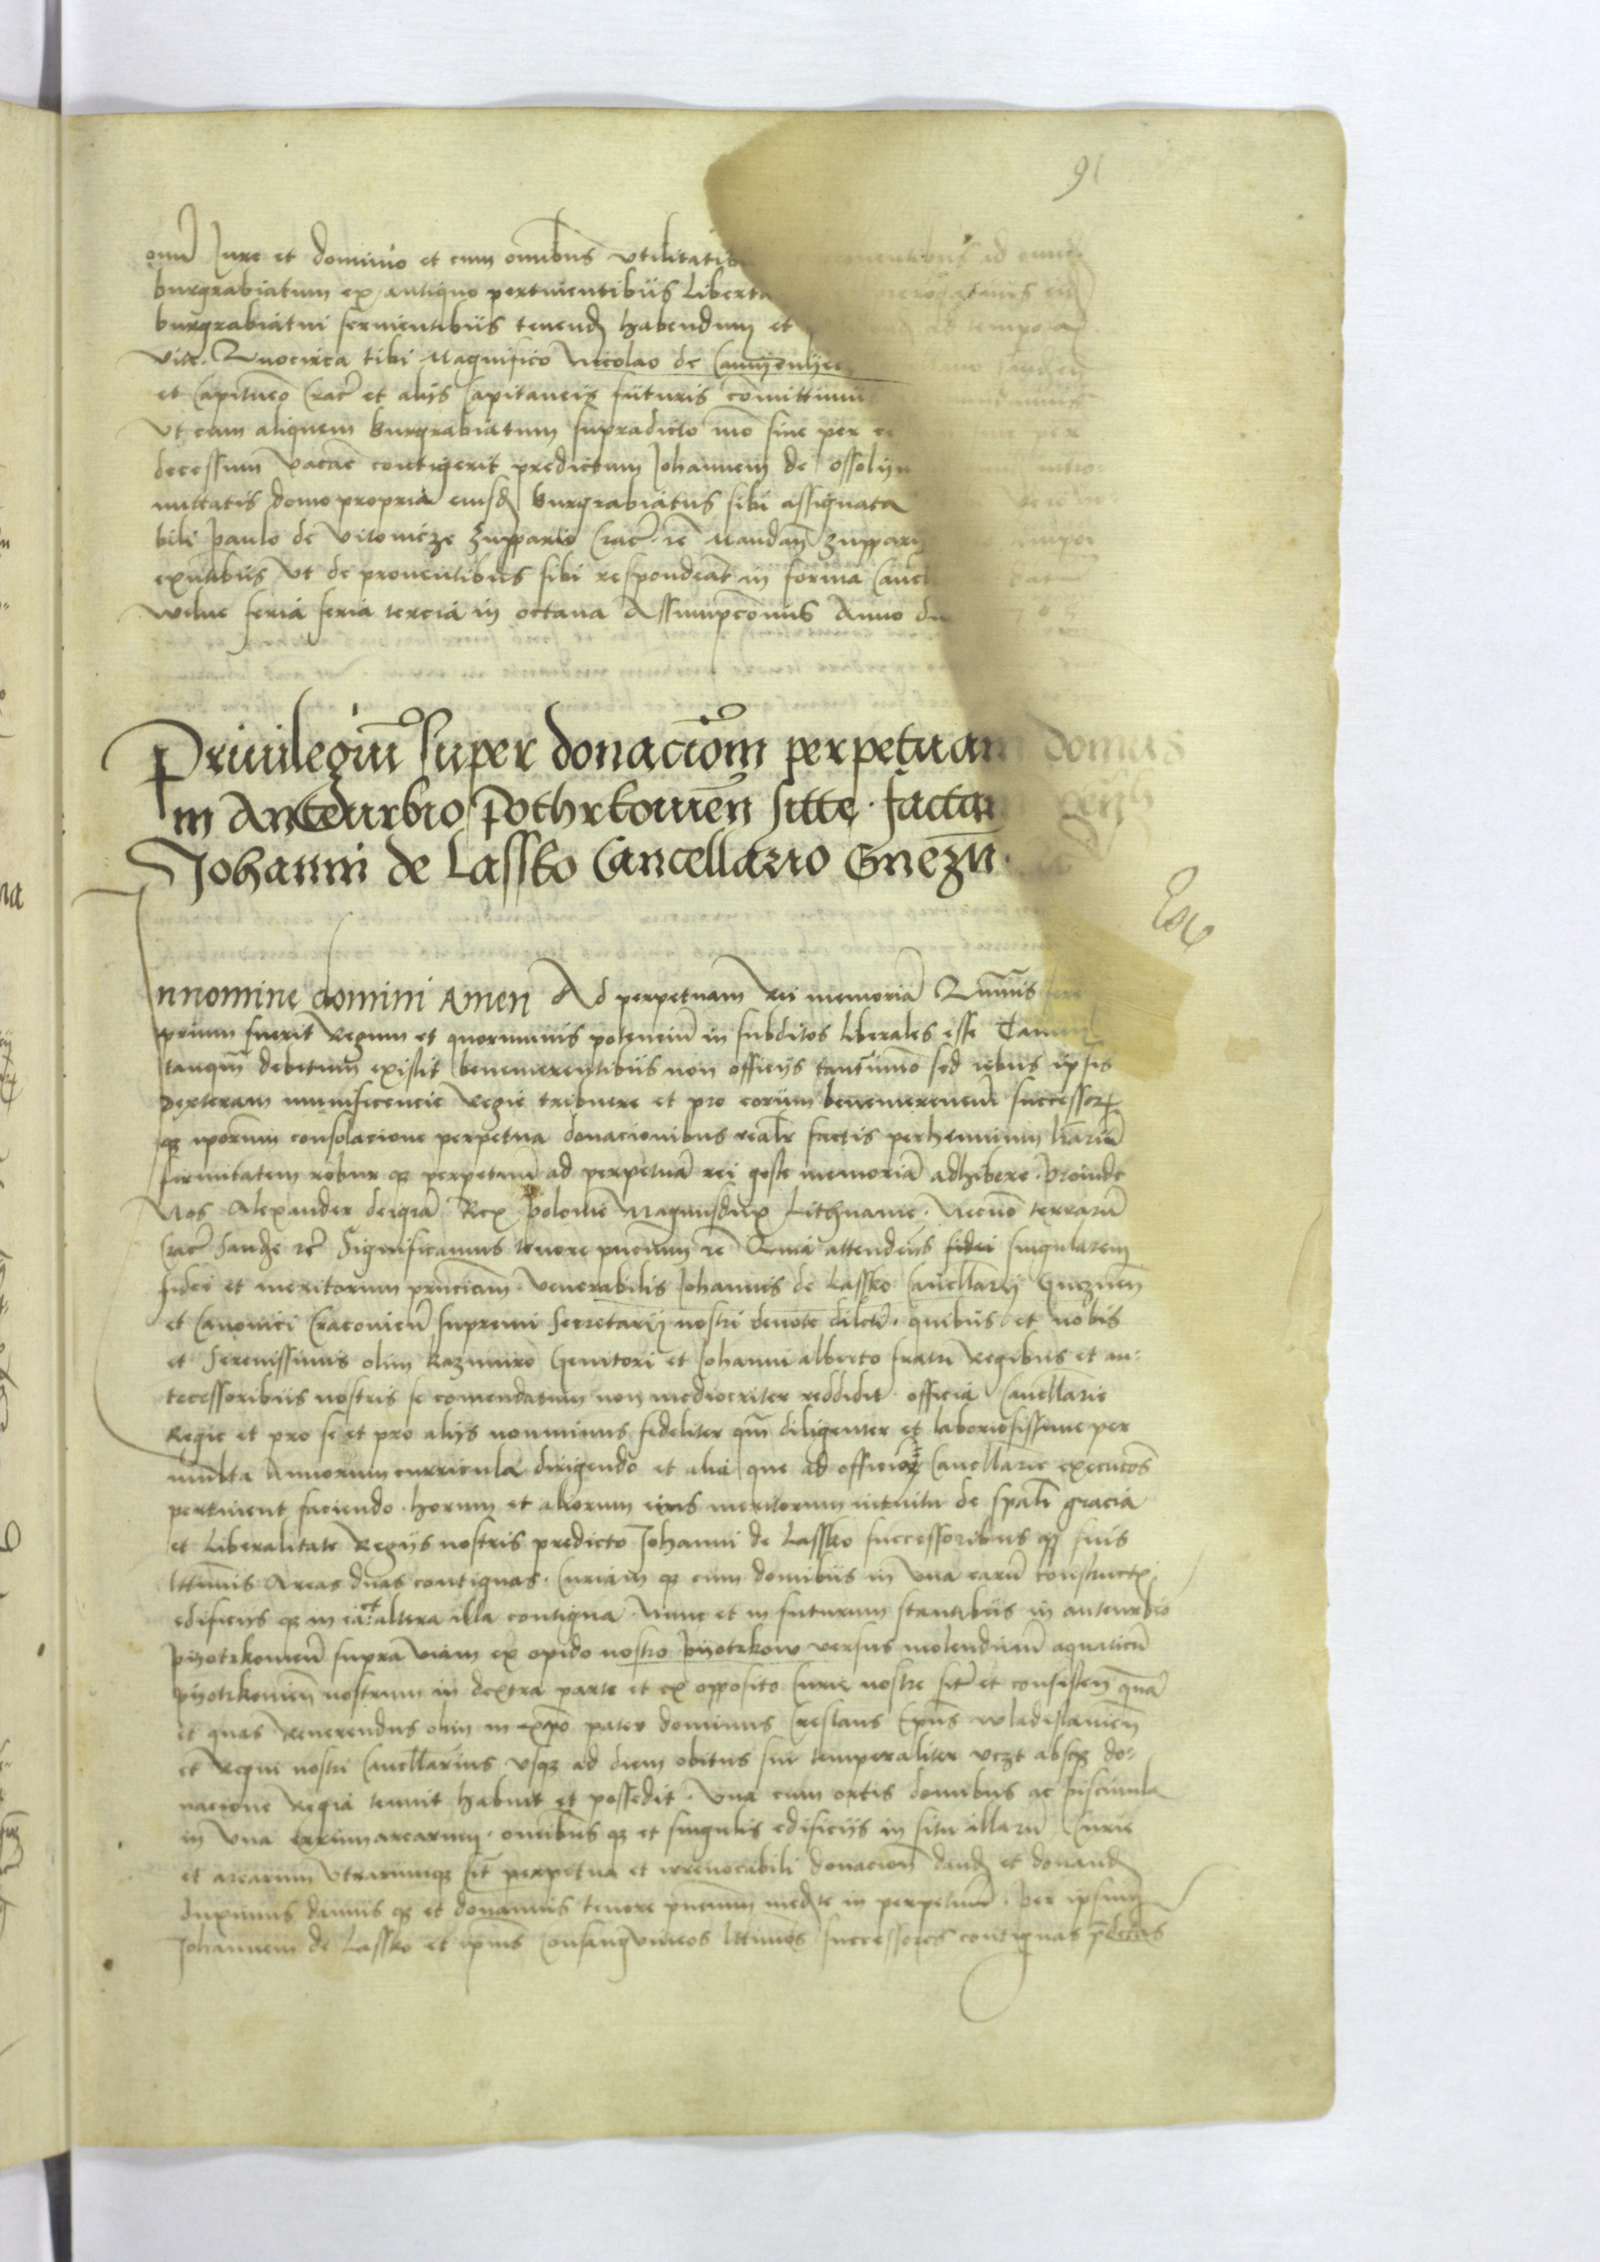 91
omni Jure et dominio et cum omnibus utilitatibus ad
burgrabiatum ex antiquo pertinentibus Liberta
burgrabiatui servientibus tenend habendum et ad tempora
vite. Quocirca tibi Magnifico Nicolao de
et Capitaneo Crac et alijs Capitaneis futuris comittimus
Ut cum aliquem burgrabiatum supradicto mo sive per
decessum vacare contigerit predictum Johannem de Ossolyn
mittatis domo propria eiusd burgrabiatus sibi assignata
bili Paulo de Vitovicze zuppario Crac. re Mandam zuppary
exntibus ut de proventibus sibi respondeat in forma
Wilne feria feria tercia in octava Assumpcionis Anno
Privilegiu super donaciom perpetuam domus
in Anteurbio Pothrkovien sitte. factam
Johanni de Lassko Cancellario Gnezn.
In nomine domini Amen Ad perpetuam Rei memoria Quamvis
prium fuerit Regum et quorumvis potencium in subditos liberales esse
tanqm debetum existit benemerentibus non officijs tantumo sed rebus ipsis
dexteram munificencie Regie tribuere et pro eorum benemerenciu successor
q iporum consolacione perpetua donacionibus realr factis perhennium lrarum
firmitatem robur q perpetuu ad perpetua rei geste memoria adhibere. Proinde
Nos Alexander dei gra Rex Polonie Magnusdux Lithuanie. Necno terraru
Crac Sandze rc Significamus tenore pncium re Quia attendens fidei singularem
fidei et meritorum pnciam. Venerabilis Johannis de Lassko Cancellarij Gneznen
et Canonici Cracovien supremi Secretarij nostri devote dilcti. quibus et nobis
et Serenissimis olim Kazimiro Genitori et Johanni alberto fratri Regibus et an-
tecessoribus nostris se comendatum non mediocriter reddidit. officia Cancellarie
Regie et pro se et pro alijs nominibus fideliter qm diligenter et laboriosissime per
multa Annorum curricula dirigendo et alia que ad officior Cancellarie execucos
pertinent faciendo. horum et aliorum eius meritorum intuitu de spali gracia
et Liberalitate Regijs nostris predicto Johanni de Lassko successoribus q suis
lttimis Areas duas contiguas. Curiam q cum domibus in una earu constructx
edificijs q in ea altera illa contigua. Nunc et in futurum stantibus in anteurbio
Pyotrkowien supra viam ex opido nostro Pyotrkow versus molendinu aquaticu
Pyotrkowien nostrum in dextra parte et ex opposito Curie nostre sit et consisten qua
et quas Reverendus olim in xpo pater dominus Creslaus Epus wladislavien
et Regni nostri Cancellarius usq ad diem obitus sui temporaliter vczt absq do-
nacione Regia tenuit habuit et possedit. Una cum ortis domibus ac piscinula
in una earum arearum. omnibus q et singulis edificijs in situ illaru Curie
et arearum utrarumq sit perpetua et irrevocabili donacion dand et donand
duximus damus q et donamus tenore pncium medte in perpetuu. Per ipsum
Johannem de Lassko et ipius Consangvineos lttimos successores contiguas pdctas